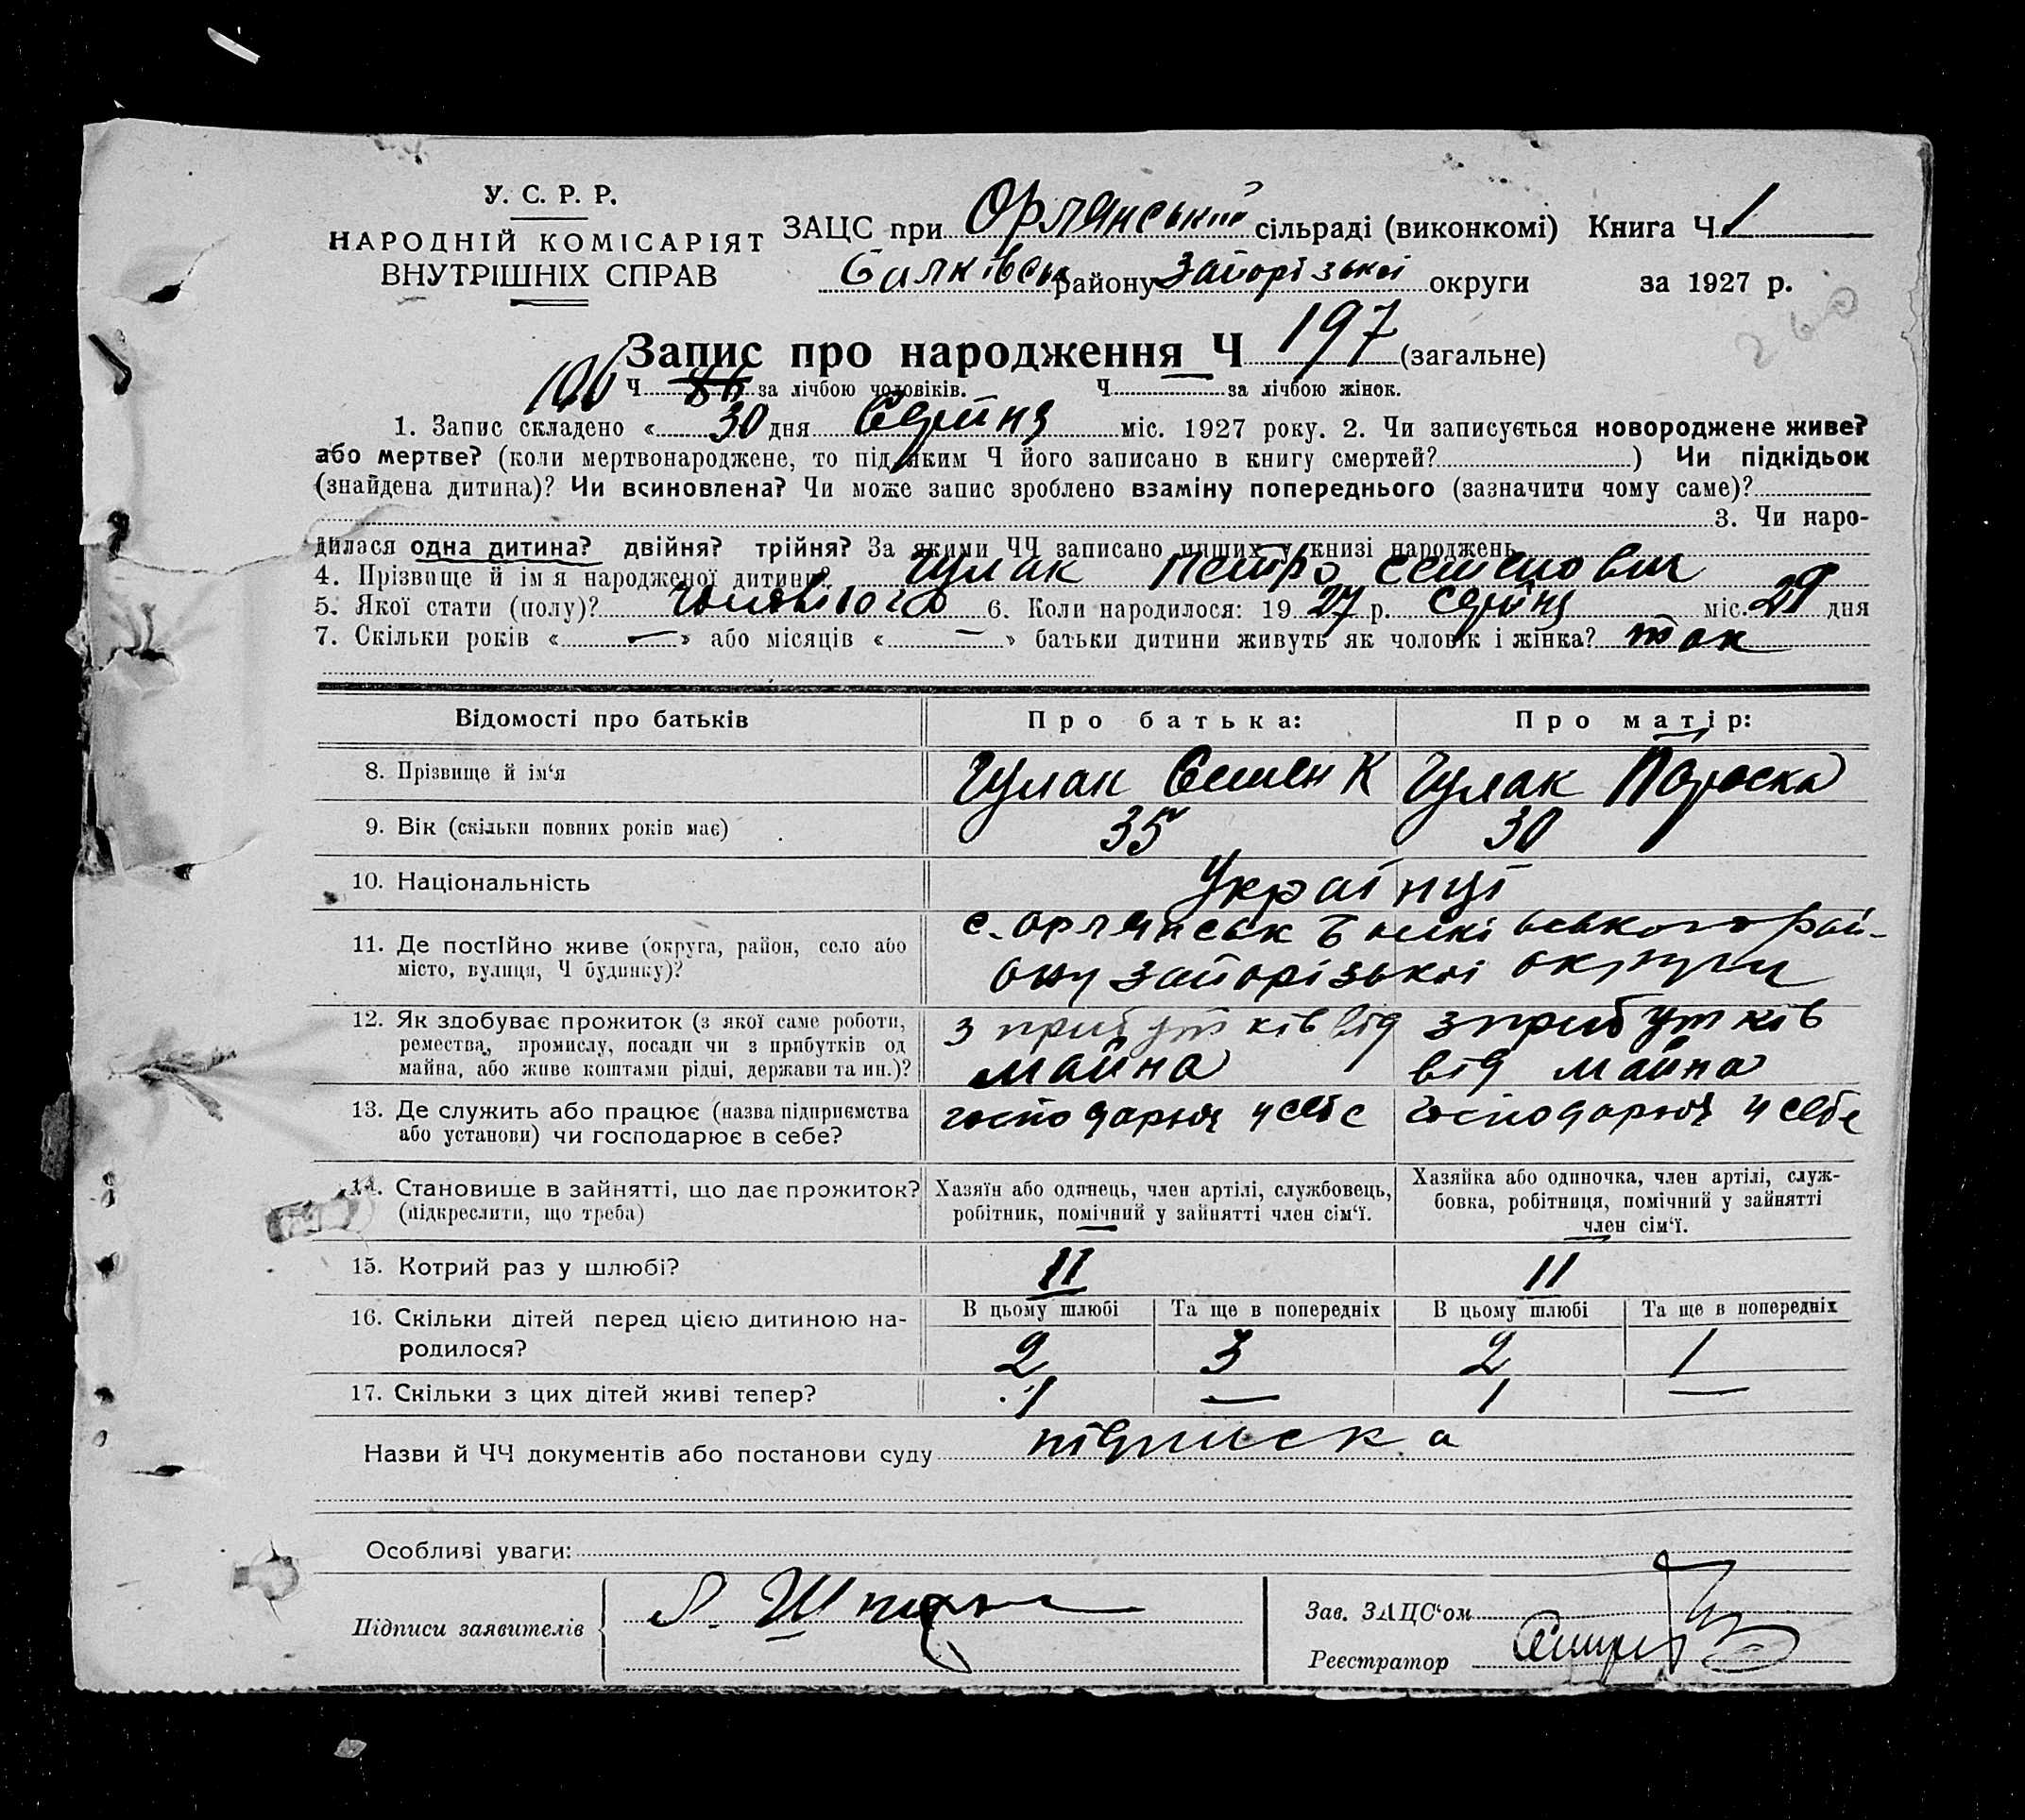 У. С. Р. Р.
НАРОДНІЙ КОМІСАРІЯТ
ВНУТРІШНІХ СПРАВ
ЗАЦС при Орлянській сільраді (виконкомі) Книга Ч. 1
Балківськ району Запорізької округи за 1927 р.
260
Запис про народження Ч 197 (загальне)
106 Ч. за лічбою чоловіків. Ч. за лічбою жінок.
1. Запис складено « 30 дня Серпня міс. 1927 року. 2. Чи записується новороджене живе?
або мертве? (коли мертвонароджене, то під яким Ч його записано в книгу смертей?) Чи підкідьок
(знайдена дитина)? Чи всиновлена? Чи може запис зроблено взаміну попереднього (зазначити чому саме)?
3. Чи наро-
дилася одна дитина? двійня? трійня? За якими ЧЧ записано инших у книзі народжень
4. Прізвище й ім'я народженої дитини? Гулак Петро Семенович
5. Якої стати (полу)? чоловічого 6. Коли народилося: 1927 р. серпня міс. 29 дня
7. Скільки років « — » або місяців « — » батьки дитини живуть як чоловік і жінка? так
Відомості про батьків Про батька: Про матір:
8. Прізвище й ім'я Гулак Семен К Гулак Параска
9. Вік (скільки повних років має) 35 30
10. Національність Українці
11. Де постійно живе (округа, район, село або
місто, вулиця, Ч будинку)?
с. Орлянськ Балківського рай-
ону Запорізької округи
12. Як здобуває прожиток (з якої саме роботи,
ремества, промислу, посади чи з прибутків од
майна, або живе коштами рідні, держави та ин.)?
з прибутків від
майна
з прибутків
від майна
13. Де служить або працює (назва підприємства
або установи) чи господарює в себе?
господарює у себе господарює у себе
14. Становище в зайнятті, що дає прожиток?
(підкреслити, що треба)
Хазяїн або одинець, член артілі, службовець,
робітник, помічний у зайнятті член сім'ї.
Хазяйка або одиночка, член артілі, служ-
бовка, робітниця, помічний у зайнятті
член сім'ї.
15. Котрий раз у шлюбі? II II
16. Скільки дітей перед цією дитиною на-
родилося?
В цьому шлюбі Та ще в попередніх В цьому шлюбі Та ще в попередніх
2 3 2 1
17. Скільки з цих дітей живі тепер? 1 — 1 —
Назви й ЧЧ документів або постанови суду підписка
Особливі уваги:
Підписи заявителів
Зав. ЗАЦС'ом
Реєстратор